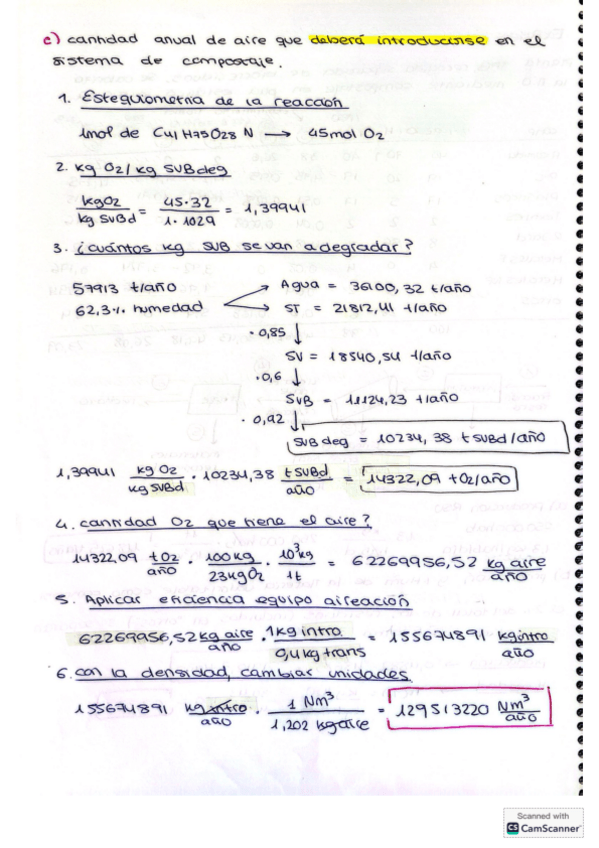 c) cantidad anual de aire que deberá introducirse en el
sistema de compostaje.
1. Estequiometria de la reacción
1mol de C41 H75 O28 N → 45 mol O2
2. kg O2/kg SVBdeg
kgO2 / kg SVBd = 45·32 / 1·1029 = 1,39941
3. ¿cuántos kg SVB se van a degradar?
57913 t/año
62,3% humedad
Agua = 36100,32 t/año
ST = 21812,41 t/año
·0,85
SV = 18540,54 t/año
·0,6
SVB = 11124,23 t/año
·0,92
SVB deg = 10234,38 t SVBd/año
1,39941 kg O2 / kg SVBd · 10234,38 t SVBd / año = 14322,09 t O2/año
4. cantidad O2 que tiene el aire?
14322,09 t O2 / año · 100 kg / 23 kg O2 · 10³ kg / 1t = 62269956,52 kg aire / año
5. Aplicar eficiencia equipo aireación
62269956,52 kg aire / año · 1 kg intro / 0,4 kg trans = 155674891 kg intro / año
6. con la densidad, cambiar unidades
155674891 kg intro / año · 1 Nm³ / 1,202 kg aire = 129513220 Nm³ / año
Scanned with
CS CamScanner